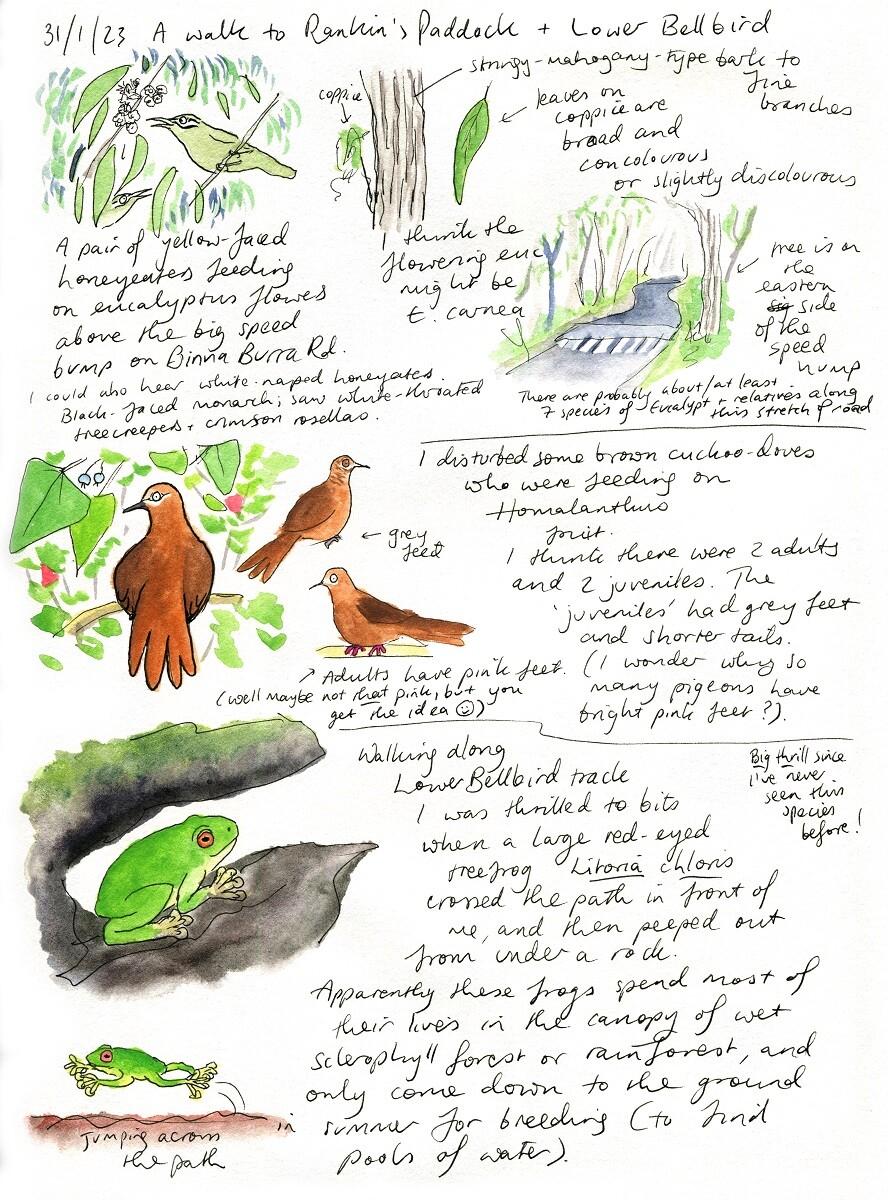 31/1/23 A walk to Rankin's Paddock + Lower Bellbird
stringy-mahogany-type bark to
fine
branches
coppice
leaves on
coppice are
broad and
concolourous
or slightly discolourous
A pair of yellow-faced
honeyeaters feeding
on eucalyptus flowers
above the big speed
bump on Binna Burra Rd.
I could also hear white-naped honeyeaters
Black-faced monarch; saw white-throated
treecreepers + crimson rosellas.
I think the
flowering euc
might be
E. carnea
tree is on
the
eastern
side
of the
speed
hump
There are probably about/at least
7 species of Eucalypt + relatives along
this stretch of road
I disturbed some brown cuckoo-doves
who were feeding on
Homalanthus
fruit.
I think there were 2 adults
and 2 juveniles. The
'juveniles' had grey feet
and shorter tails.
(I wonder why so
many pigeons have
bright pink feet?).
← grey
feet
Adults have pink feet.
(well maybe not that pink, but you
get the idea ☺)
Walking along
Lower Bellbird track
I was thrilled to bits
when a large red-eyed
treefrog Litoria chloris
crossed the path in front of
me, and then peeped out
from under a rock.
Big thrill since
I've never
seen this
species
before!
Apparently these frogs spend most of
their lives in the canopy of wet
sclerophyll forest or rainforest, and
only come down to the ground
in summer for breeding (to find
pools of water).
Jumping across
the path